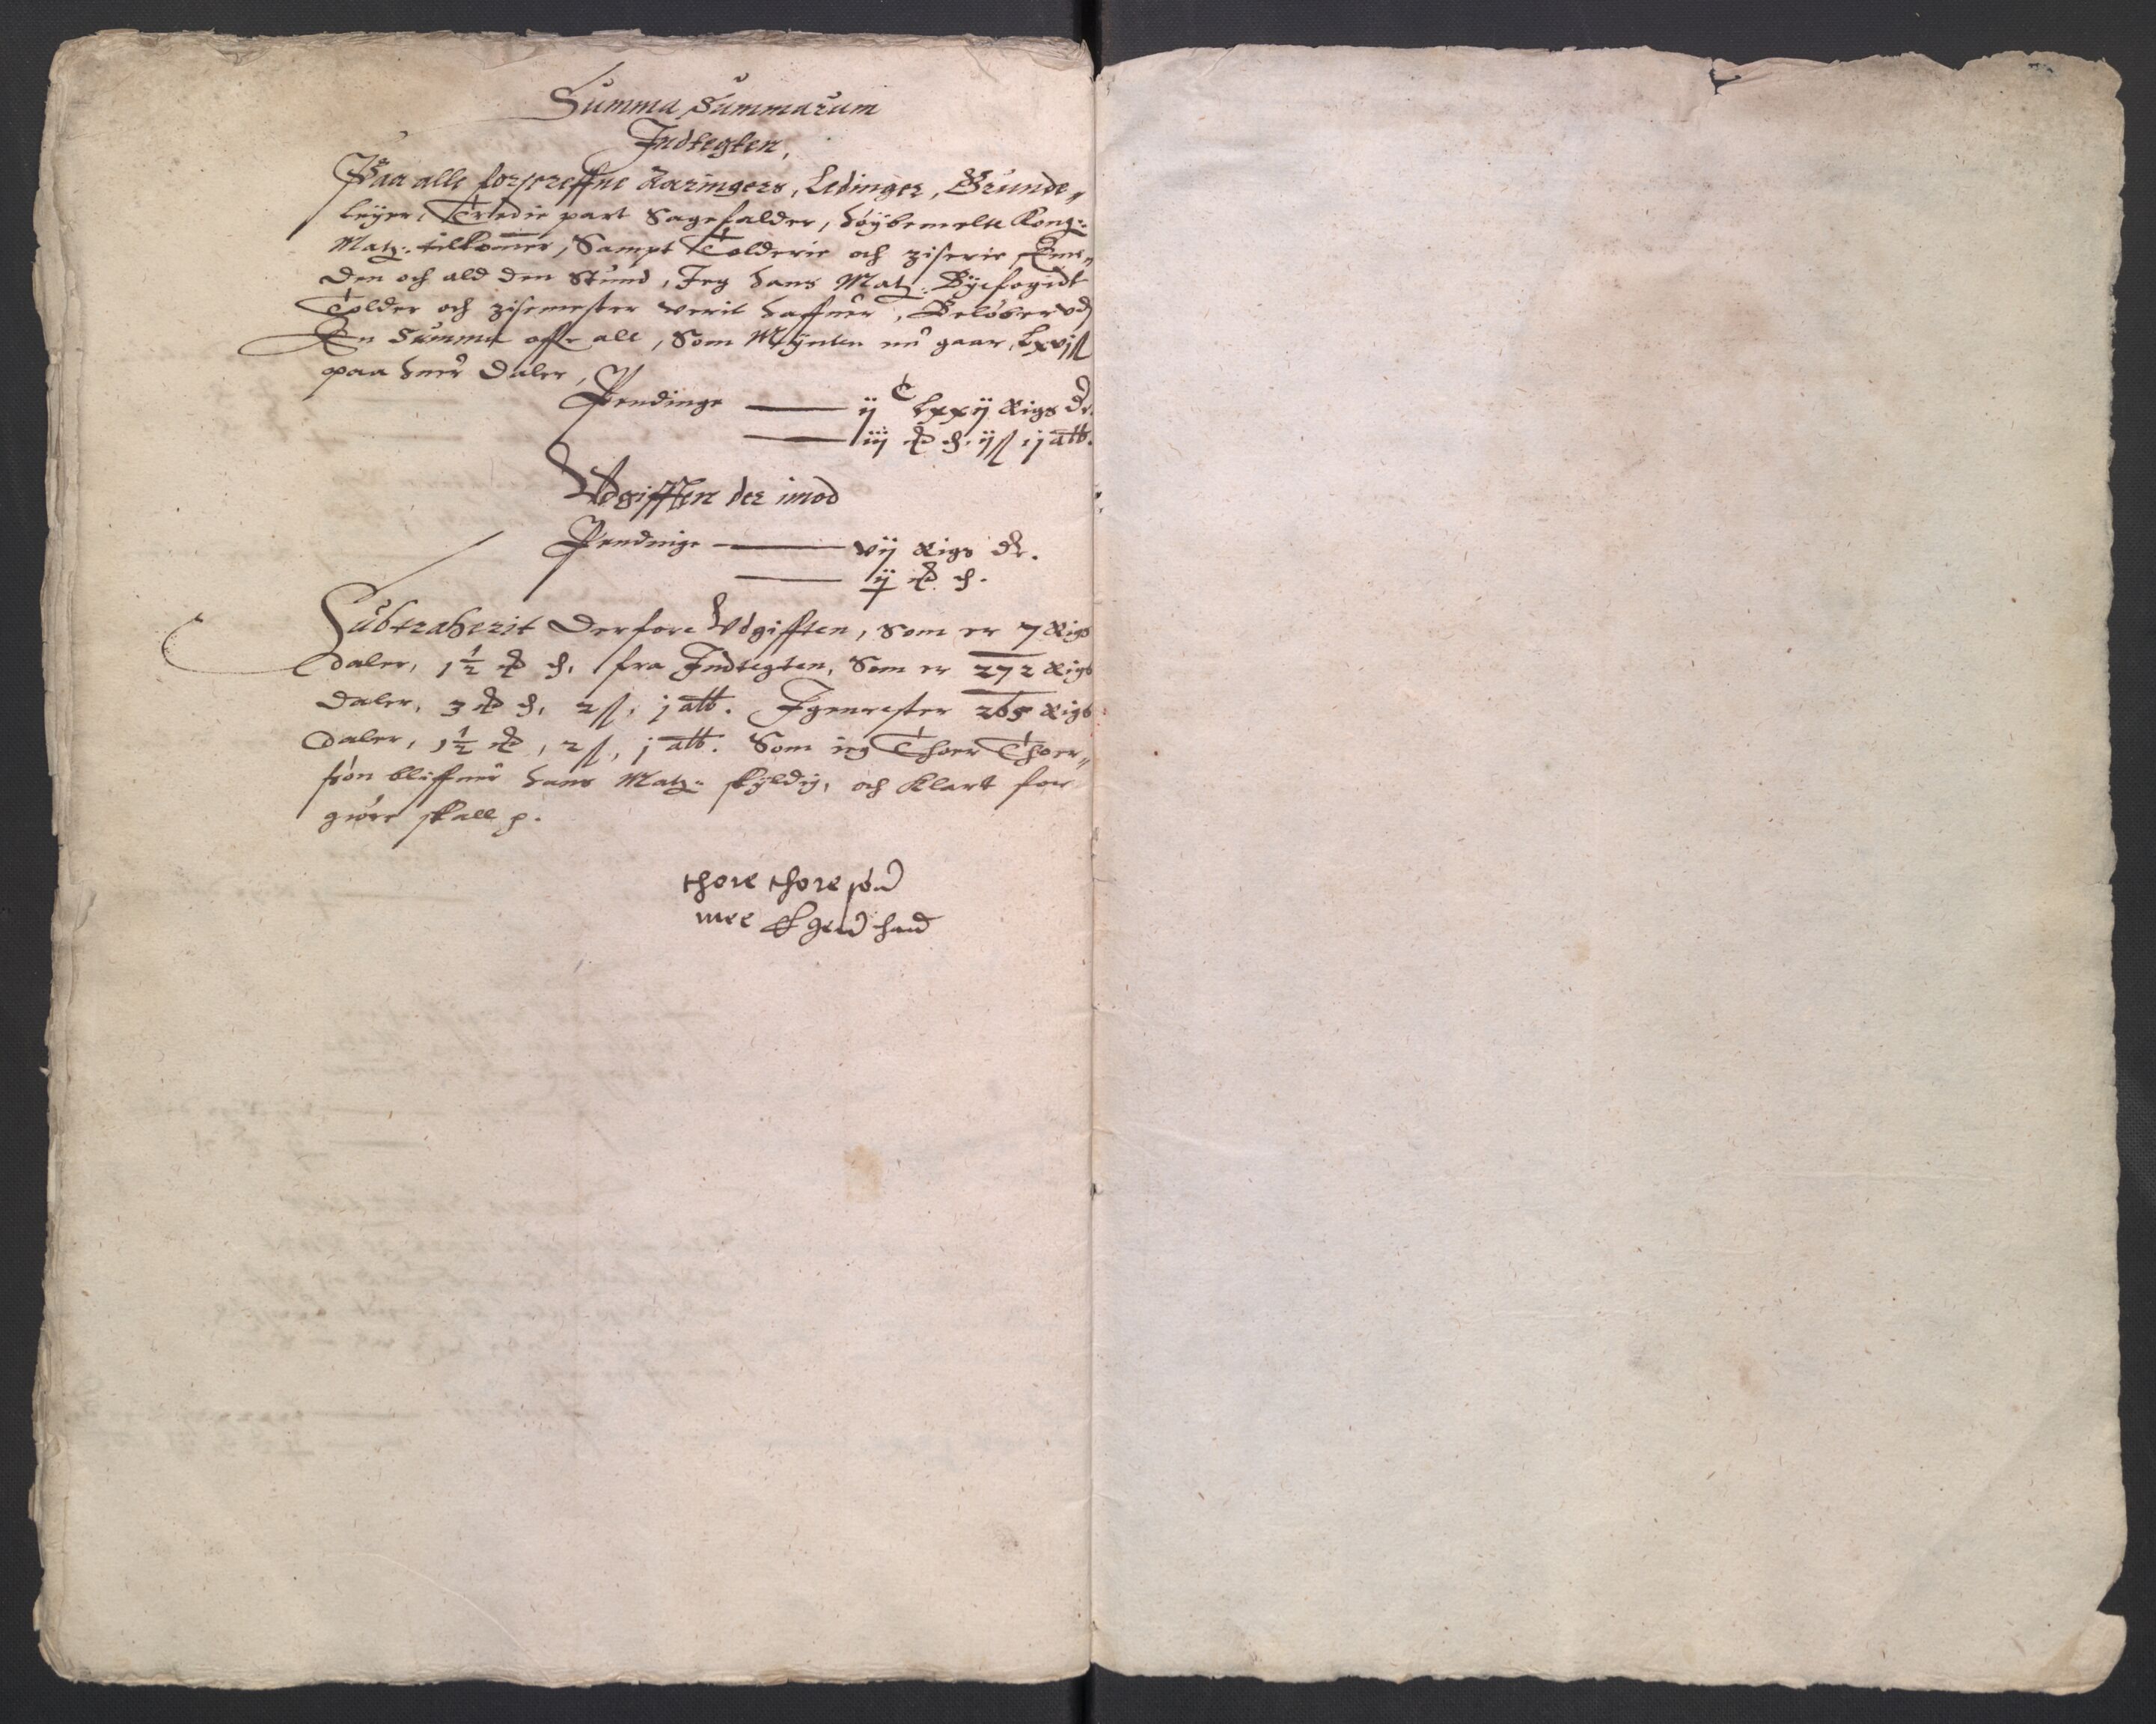 Summa Summarum
Indtegten,
Paa alle forscreffne Aaringers, Ledinger, Grunde„
leyer, Tredie part Sagefalder, höybemelte Kong:
Matz: tilkommer, Sampt Tolderie och ziserie,
den och ald den Stund, Jeg hans Matz: Byefogidt
Tolder och zisemester verit haffuer, Belöber vdj
En Summa offr all, Som Mynten nu gaar, Lxvj ß
paa huer Daler,
Pendinge —— ij C Lxxij Rigs dr.
—— iij mk d. ij ß j alb.
Vdgifften der imod
Pendinge —— vij Rigs dr.
—— ij mk d.
Subtraherit derfore Vdgifften, som er 7 Rigs
daler, 1½ mk d. fra Indtegten, Som er 272 Rigs
daler, 3 mk d, 2 ß, j alb. Igenrester 265 Rigs
daler, 1½ mk, 2 ß, j alb. Som ieg Thoer Thoer„
sön bliffuer hans Matz: skyldig, och Klart for
giöre skall p.
thore thore sön
mee Egen hand